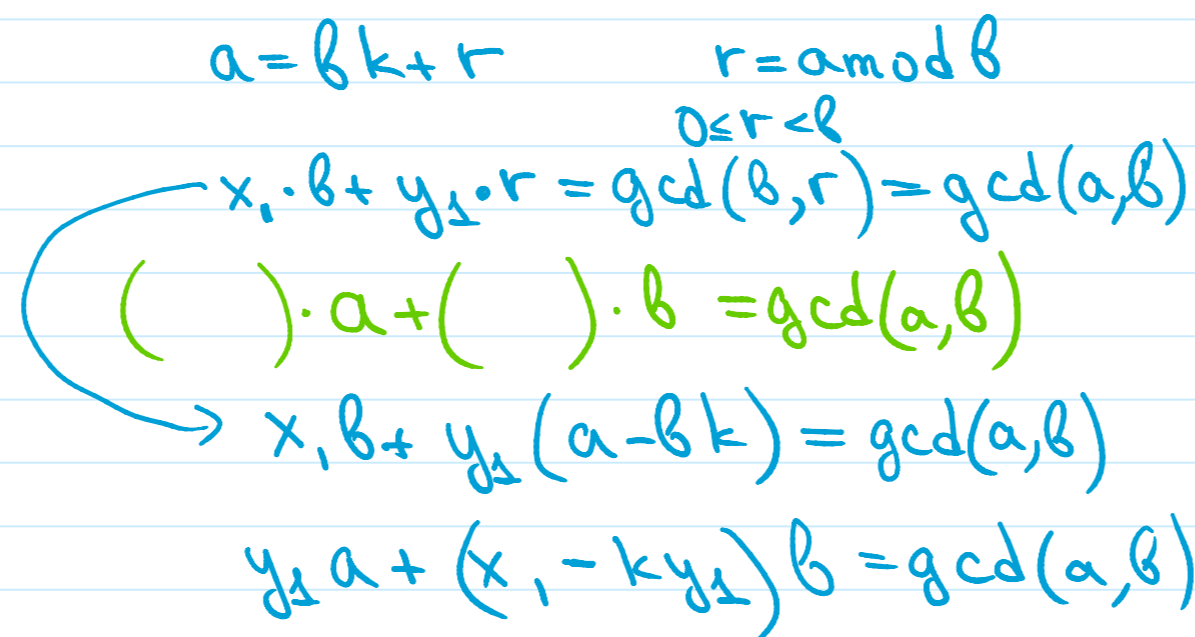 a = bk + r r = a mod b
0 ≤ r < b
x₁ · b + y₁ · r = gcd(b, r) = gcd(a, b)
( ) · a + ( ) · b = gcd(a, b)
x₁b + y₁(a - bk) = gcd(a, b)
y₁a + (x₁ - ky₁)b = gcd(a, b)